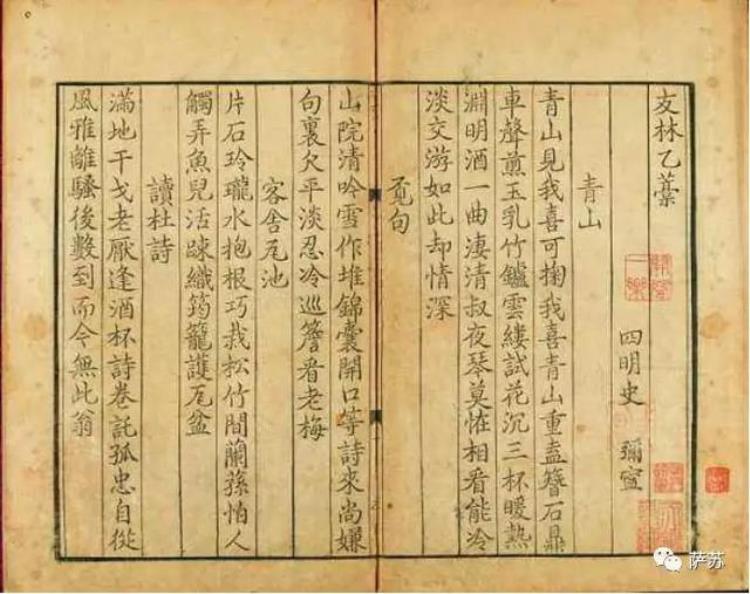 友林乙藁
四明史 彌寧
青山
青山見我喜可掬我喜青山重盍簪石鼎
車聲煎玉乳竹鑪雲縷試花沉三杯暖熱
淵明酒一曲淒清叔夜琴莫怪相看能冷
淡交游如此却情深
覓句
山院清吟雪作堆錦囊開口等詩來尚嫌
句裏欠平淡忍冷巡簷看老梅
客舍瓦池
片石玲瓏水抱根巧栽松竹間蘭蓀怕人
觸弄魚兒活踈織筠籠護瓦盆
讀杜詩
滿地干戈老厭逢酒杯詩卷託孤忠自從
風雅離騷後數到而今無此翁
萨苏